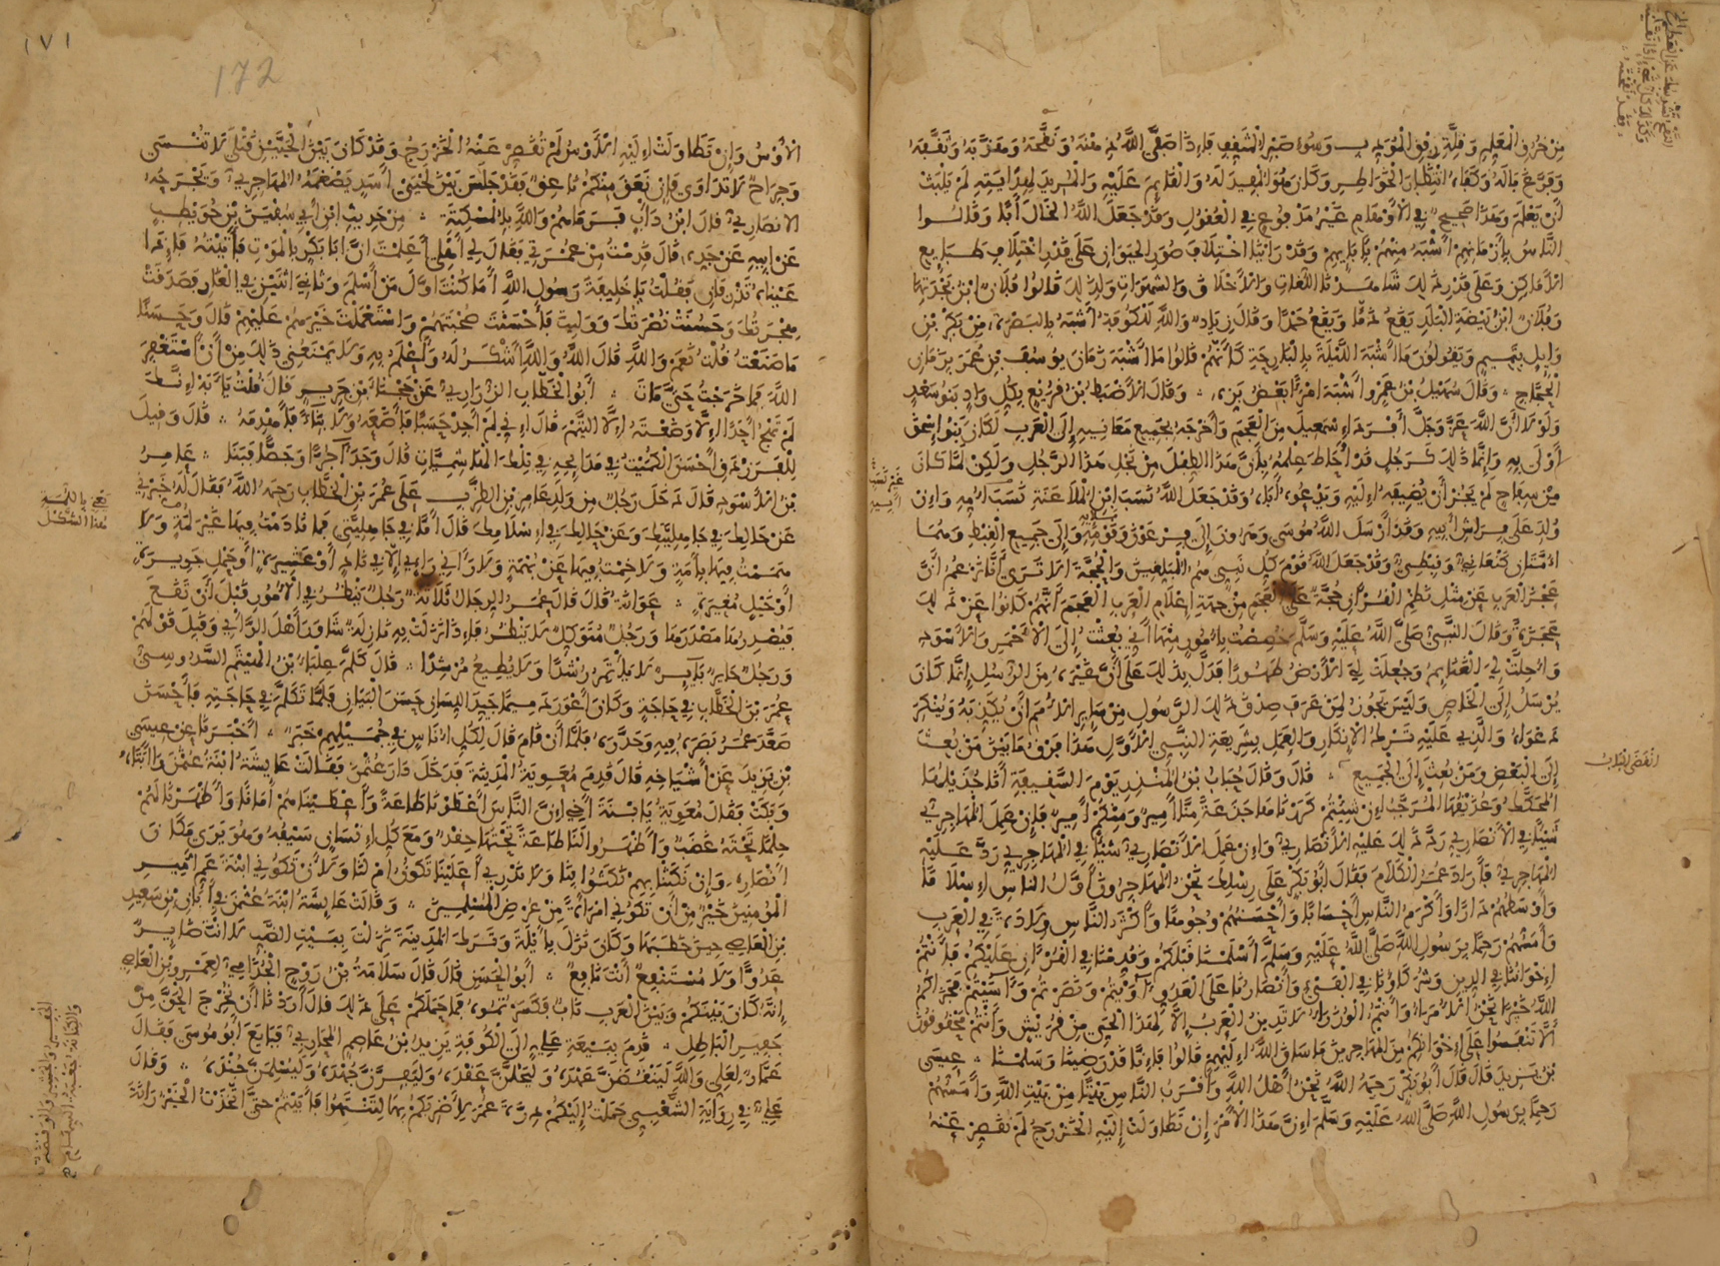 من خرق المعلم وقلة رفق المؤدب وسوء صبر المثقف فإذا صفى الله ذهنه ونقحه وهذبه وثقفه
وفرغ باله وكفاه انتظار الخواطر وكان هو المفيد له والقائم عليه والمريد لهدايته لم يلبث
أن يعلم وهذا صحيح في الأوهام غير مدفوع في العقول وقد جعل الله الخال أبا وقالوا
الناس بأزمانهم أشبه منهم بآبائهم وقد رأينا اختلاف صور الحيوان على قدر اختلاف طبايع
الأماكن وعلى قدر ذلك شاهدنا اللغات والأخلاق والشهوات ولذلك قالوا فلان ابن بجدتها
وفلان ابن بيضة البلد يقع ذما ويقع حمدا وقال زياد والله للكوفة أشبه بالبصرة من بكر بن
وايل بتميم ويقولون ما أشبه الليلة بالبارحة كأنهم قالوا ما أشبه زمان يوسف بن عمر بزمان
الحجاج وقال سهيل بن عمرو أشبه امرأ بعض بزه وقال الأضبط بن قريع بكل واد بنو سعد
ولولا أن الله عز وجل أفرد إسمعيل من العجم وأخرجه بجميع معانيه إلى العرب لكان بنو إسحق
أولى به وإنما ذلك كرجل قد أحاط علمه بأن هذا الطفل من نجل هذا الرجل ولكن لما كان
من سفاح لم يجز أن يضيفه إليه ويدعوه أبا وقد جعل الله نسب ابن الملاعنة نسب أمه وإن
ولد على فراش أبيه وقد أرسل الله موسى وهارون إلى فرعون وقومه وإلى جميع القبط وهما
أمتان كنعاني وقبطي وقد جعل الله قوم كل نبي هم المبلغين والحجة ألا ترى أنا نزعم أن
عجز العرب عن مثل نظم القرآن حجة على العجم من جهة إعلام العرب العجم أنهم كانوا عن ذلك
عجزة وقال النبي صلى الله عليه وسلم خصصت بأمور منها أني بعثت إلى الأحمر والأسود
وأحلت لي الغنايم وجعلت لي الأرض طهورا فدل بذلك على أن غيره من الرسل إنما كان
يرسل إلى الخاص وليس يجوز لمن عرف صدق ذلك الرسول من ساير الأمم أن يكذبه وينكر
دعواه والذي عليه ترك الإنكار والعمل بشريعة النبي الأول هذا فرق ما بين من بعث
إلى البعض ومن بعث إلى الجميع قال وقال حباب بن المنذر يوم السقيفة أنا جذيلها
المحكك وعذيقها المرجب إن شئتم كررناها جذعة منا أمير ومنكم أمير فإن عمل المهاجري
شيئا في الأنصاري رد ذلك عليه الأنصاري وإن عمل الأنصاري شيئا في المهاجري رد عليه
المهاجري فأراد عمر الكلام فقال أبو بكر على رسلك نحن المهاجرون أول الناس إسلاما
وأوسطهم دارا وأكرم الناس أحسابا وأحسنهم وجوها وأكثر الناس ولادة في العرب
وأمسهم رحما برسول الله صلى الله عليه وسلم أسلمنا قبلكم وقدمنا في القرآن عليكم فأنتم
إخواننا في الدين وشركاؤنا في الفيء وأنصارنا على العدو آويتم ونصرتم وآسيتم فجزاكم
الله خيرا نحن الأمراء وأنتم الوزراء لا تدين العرب إلا لهذا الحي من قريش وأنتم محقوقون
ألا تنفسوا على إخوانكم من المهاجرين ما ساق الله إليهم قالوا فإنا قد رضينا وسلمنا عيسى
بن يزيد قال قال أبو بكر رحمه الله نحن أهل الله وأقرب الناس بيتا من بيت الله وأمسهم
رحما برسول الله صلى الله عليه وسلم إن هذا الأمر إن تطاولت إليه الخزرج لم تقصر عنه
انقضى الباب
١٧١
172
الأوس وإن تطاولت إليه الأوس لم تقصر عنه الخزرج وقد كان بين الحيين قتلى لا تنسى
وجراح لا تداوى فإن نعق منكم ناعق فقد جلس بين لحيي أسد يضغمه المهاجري ويجرحه
الأنصاري قال ابن دأب فرماهم والله بالمسكتة من حديث ابن أبي سفين بن حويطب
عن أبيه عن جده قال قدمت من عمرتي فقال لي أهلي أعلمت أن أبا بكر بالموت فأتيته فإذا
عيناه تذرفان فقلت يا خليفة رسول الله أما كنت أول من أسلم وثاني اثنين في الغار فصدقت
هجرتك وحسنت نصرتك ووليت فأحسنت صحبتهم واستعملت خيرهم عليهم قال وحسنا
ما صنعت قلت نعم والله قال الله والله أشكر له وأعلم به ولا يمنعني ذلك من أن أستغفر
الله فما خرجت حتى مات أبو الخطاب الزراري عن حجناء بن جرير قال قلت يا أبه إنك
لم تهج أحدا إلا وضعته إلا التيم قال إني لم أجد حسبا فأضعه ولا بناء فأهدمه قال وقيل
للفرزدق أحسن الكميت في مدايحه في تلك الهاشميات قال وجد آجرا وجصا فبنا عامر
بن الأسود قال دخل رجل من ولد عامر بن الظرب على عمر بن الخطاب رحمه الله فقال له خبرني
عن حالك في جاهليتك وعن حالك في إسلامك قال أما في جاهليتي فما نادمت فيها غير لمة ولا
هممت فيها بأمة ولا خمت فيها عن بهمة ولا رآني راء إلا في ناد أو عشيرة أو حمل جريرة
أو خيل مغيرة عوانة قال قال عمر الرجال ثلاثة رجل ينظر في الأمور قبل أن تقع
فيصدرها مصدرها ورجل متوكل لا ينظر فإذا نزلت به نازلة شاور أهل الرأي وقبل قولهم
ورجل حاير باير لا يأتمر رشدا ولا يطيع مرشدا قال كلم علباء بن الهيثم السدوسي
عمر بن الخطاب في حاجة وكان أعور دميما جيد اللسان حسن البيان فلما تكلم في حاجته فأحسن
صعد عمر بصره فيه وحدره فلما أن قام قال لكل أناس في جميلهم خبر أخبرنا عن عيسى
بن يزيد عن أشياخه قال قدم معوية المدينة فدخل دار عثمن فقالت عايشة ابنة عثمن وا أبتاه
وبكت فقال معوية يا ابنة أخي إن الناس أعطونا طاعة وأعطيناهم أمانا وأظهرنا لهم
حلما تحته غضب وأظهروا لنا طاعة تحتها حقد ومع كل إنسان سيفه وهو يرى مكان
أنصاره وإن نكثنا بهم نكثوا بنا ولا ندري أعلينا تكون أم لنا ولأن تكوني ابنة عم أمير
المؤمنين خير من أن تكوني امرأة من عرض المسلمين وقالت عايشة ابنة عثمن في أبان بن سعيد
بن العاص حين خطبها وكان نزل بأيلة وترك المدينة نزلت ببيت الضب لا أنت ضاير
عدوا ولا مستنفع أنت نافع أبو الحسن قال قال سلامة بن روح الجذامي لعمرو بن العاص
إنه كان بينكم وبين العرب باب فكسرتموه فما حملكم على ذلك قال أردنا أن نخرج الحق من
حفير الباطل قدم ببيعة علي إلى الكوفة يزيد بن عاصم المحاربي فبايع أبو موسى فقال
عمار لعلي والله لينقضن عهده وليحلن عقده وليفرن جهده وليسلمن جنده وقال
علي في رواية الشعبي حملت إليكم درة عمر لأضربكم بها لتنتهوا فأبيتم حتى اتخذت الخيزرانة